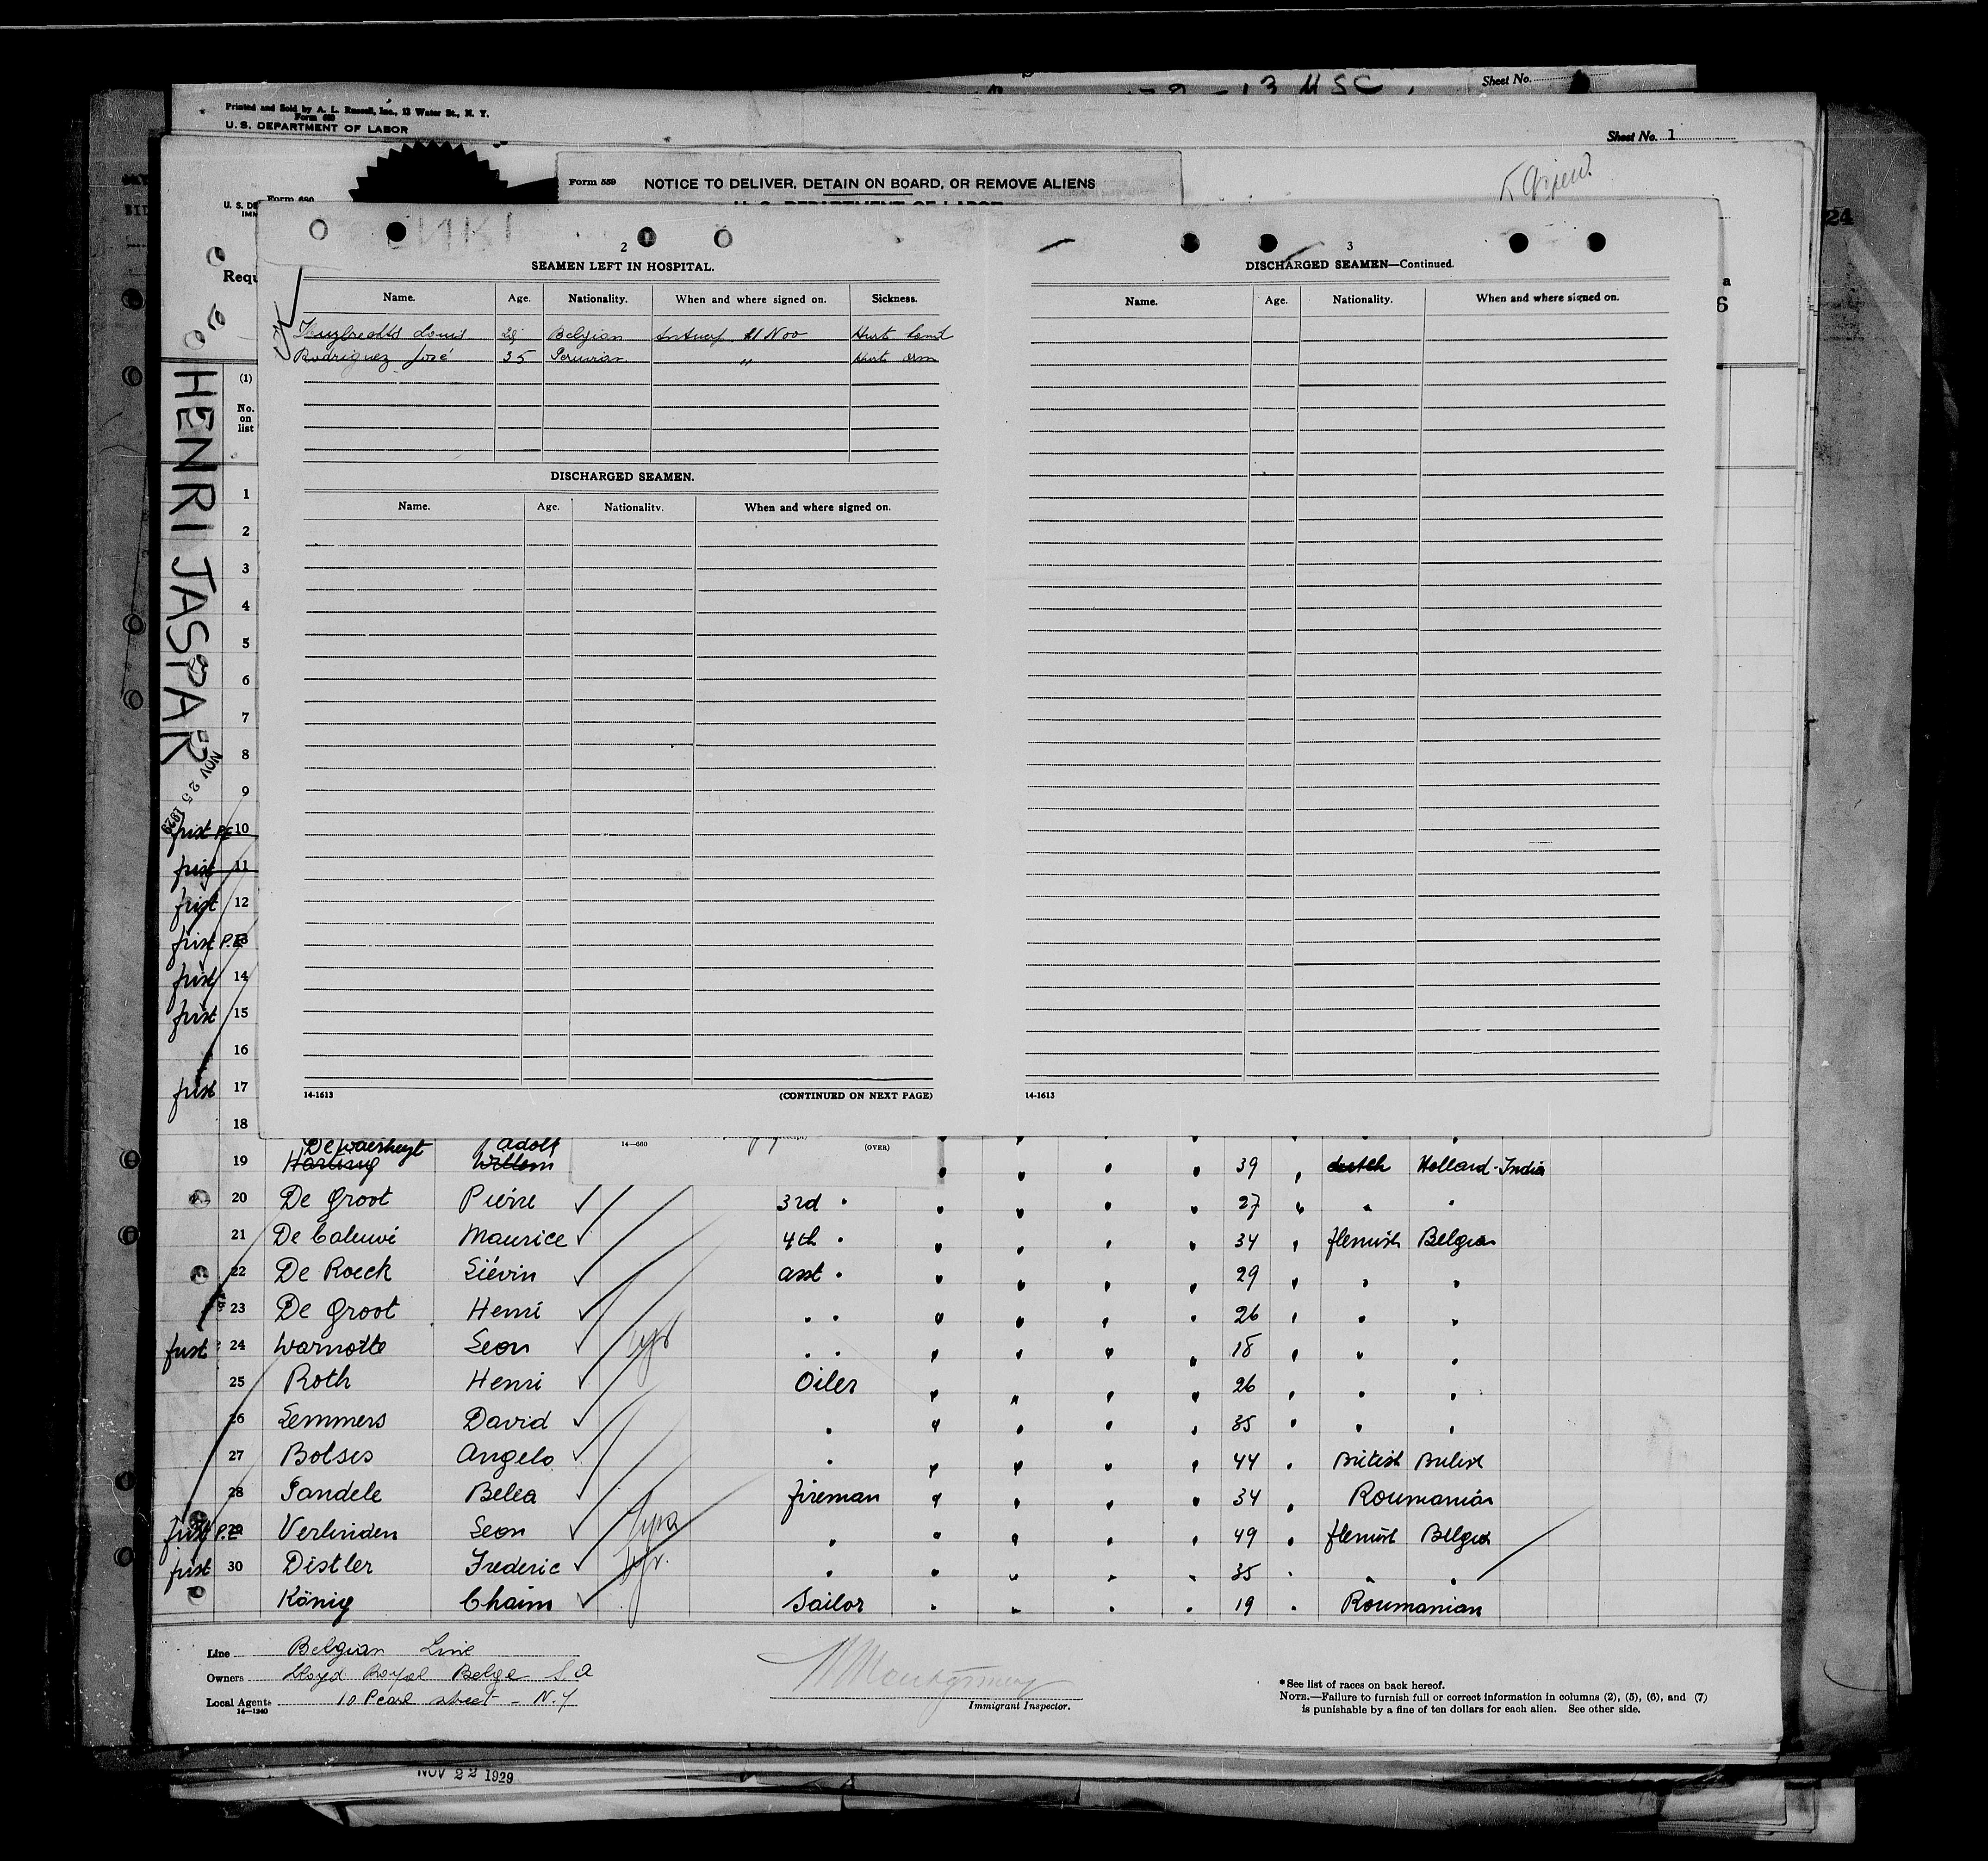 Sheet No.
Printed and Sold by A. L. Russell, Inc., 13 Water St., N. Y.
Form 680
U. S. DEPARTMENT OF LABOR
Sheet No. 1
Form 559 NOTICE TO DELIVER, DETAIN ON BOARD, OR REMOVE ALIENS
Form 680
U. S. DE
IMM
Requ
24
HENRI JASPAR
NOV 25 1929
2
SEAMEN LEFT IN HOSPITAL.
Name. Age. Nationality. When and where signed on. Sickness.
Louis Belgian Nov Hurt hand
Rodriguez José 35 Peruvian " Hurt arm
DISCHARGED SEAMEN.
Name. Age. Nationality. When and where signed on.
14-1613 (CONTINUED ON NEXT PAGE)
3
DISCHARGED SEAMEN—Continued.
Name. Age. Nationality. When and where signed on.
14-1613
(1)
No. on list
1
2
3
4
5
6
7
8
9
first P.E 10
first 11
first 12
first P.E 13
first 14
first 15
16
first 17
18
14—660 (OVER)
De Waerheyt Adolf
19 Hartung Willem 39 dutch Holland-India
20 De Groot Pierre 3rd 27
21 De Caluwé Maurice 4th 34 flemish Belgian
22 De Roeck Liévin asst 29
23 De Groot Henri 26
first 24 Warnotte Leon 18
25 Roth Henri Oiler 26
26 Lemmers David 35
27 Botsis Angelo 44 British British
28 Pandele Belea fireman 34 Roumanian
first P.E 29 Verlinden Leon 49 flemish Belgian
first 30 Distler Frederic 35
König Chaim Sailor 19 Roumanian
Line Belgian Line
Owners Lloyd Royal Belge S.A
Local Agents 10 Pearl street - N.Y
14—1240
Montgomery
Immigrant Inspector.
*See list of races on back hereof.
NOTE.—Failure to furnish full or correct information in columns (2), (5), (6), and (7)
is punishable by a fine of ten dollars for each alien. See other side.
NOV 22 1929